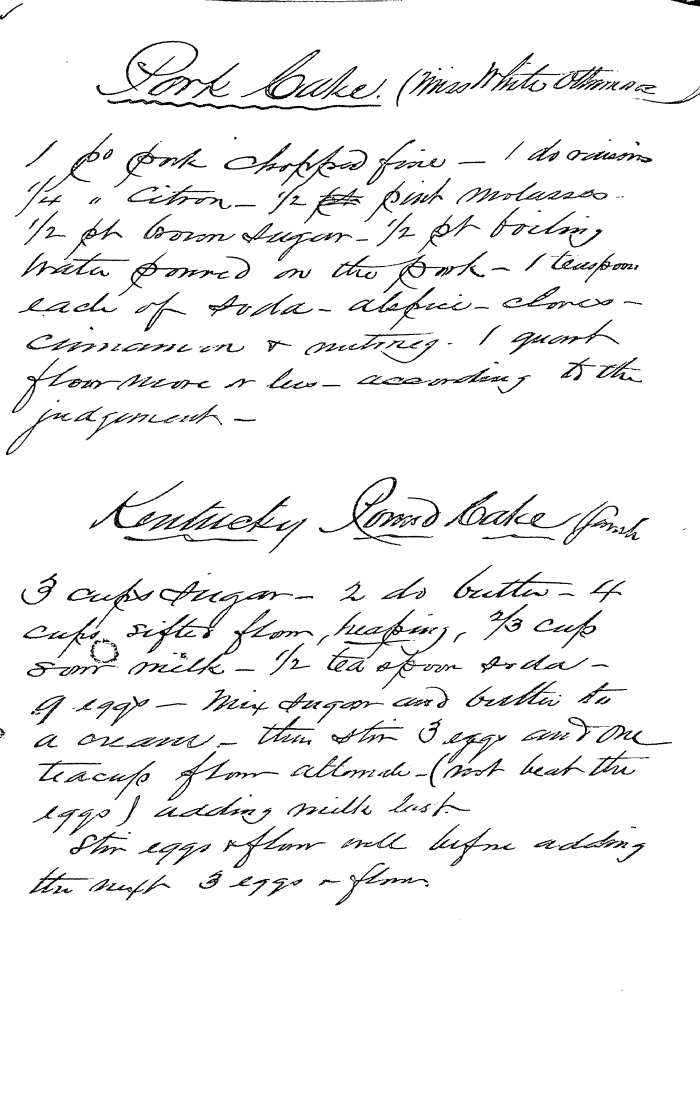 Pork Cake. (Miss White Ottumwa
1 po pork chopped fine – 1 do raisins
1/4 " Citron – 1/2 pint molasses.
1/2 pt brown sugar – 1/2 pt boiling
water poured on the pork – 1 teaspoon
each of soda – alspice – cloves –
cinnamon & nutmeg. 1 quart
flour more or less – according to the
judgement –
Kentucky Pound Cake
3 cups sugar – 2 do butter – 4
cups, sifted flour, heaping, 2/3 cup
sour milk – 1/2 tea spoon soda –
9 eggs – Mix sugar and butter to
a cream – then stir 3 eggs and one
teacup flour alternate – (not beat the
eggs) adding milk last.
Stir eggs & flour well before adding
the next 3 eggs & flour.